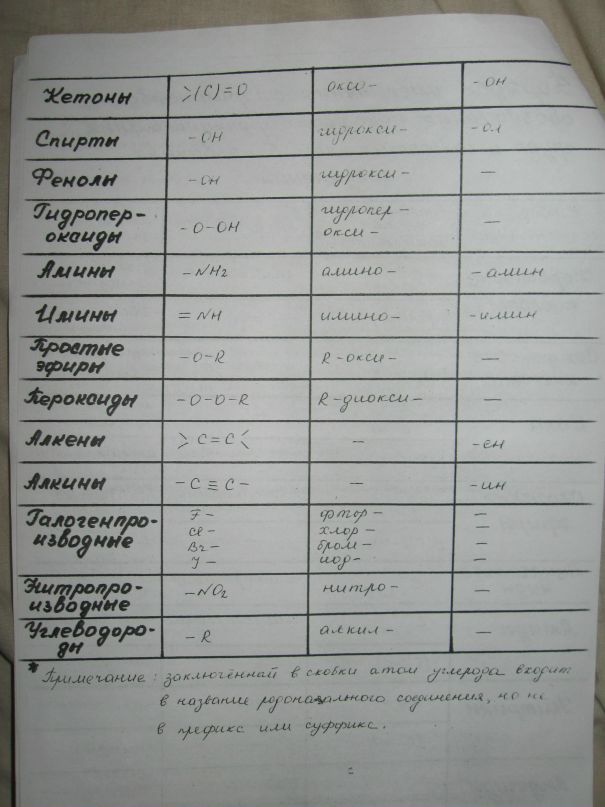 Кетоны >(C)=O оксо- -он
Спирты -OH гидрокси- -ол
Фенолы -OH гидрокси- —
Гидропер-
оксиды -O-OH гидропер-
окси- —
Амины -NH₂ амино- -амин
Имины =NH имино- -имин
Простые
эфиры -O-R R-окси- —
Пероксиды -O-O-R R-диокси- —
Алкены >C=C< — -ен
Алкины -C≡C- — -ин
Галогенпро-
изводные
F- фтор- —
Cl- хлор- —
Br- бром- —
J- иод- —
Нитропро-
изводные -NO₂ нитро- —
Углеводоро-
ды -R алкил- —
* Примечание: заключённый в скобки атом углерода входит
в название родоначального соединения, но не
в префикс или суффикс.